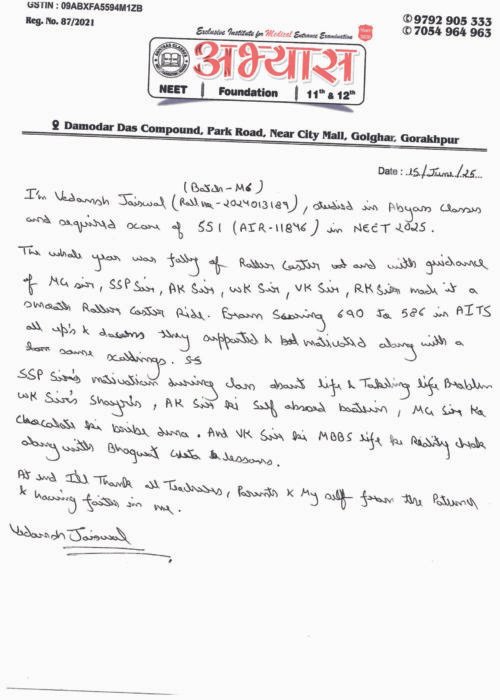 GSTIN : 09ABXFA5594M1ZB
Reg. No. 87/2021
Exclusive Institute for Medical Entrance Examination
अभ्यास
NEET | Foundation | 11th & 12th
9792 905 333
7054 964 963
Damodar Das Compound, Park Road, Near City Mall, Golghar, Gorakhpur
Date : 15/June/25
(Batch-M6)
I'm Vedansh Jaiswal (Roll no-2024013189), studied in Abyass Classes
and acquired score of 551 (AIR-11846) in NEET 2025.
The whole year was fully of Roller Coster and with guidance
of MG sir, SSP Sir, AK Sir, WK Sir, VK Sir, RK Sir made it a
smooth Roller Coster Ride. From Scoring 690 to 586 in AITS
all up's & downs they supported & motivated along with a
some scoldings.
SSP Sir's motivation during class about life & Tackling life Problem
WK Sir's Shayri's, AK Sir ki Self abroad baatein, MG Sir Ka
chocolate ki bribe dena. And VK Sir ki MBBS life ki Reality check
along with Bhagwat Geeta lessons.
At end I'll Thank all Teachers, Parents & My self from the Patience
& having faith in me.
Vedansh Jaiswal